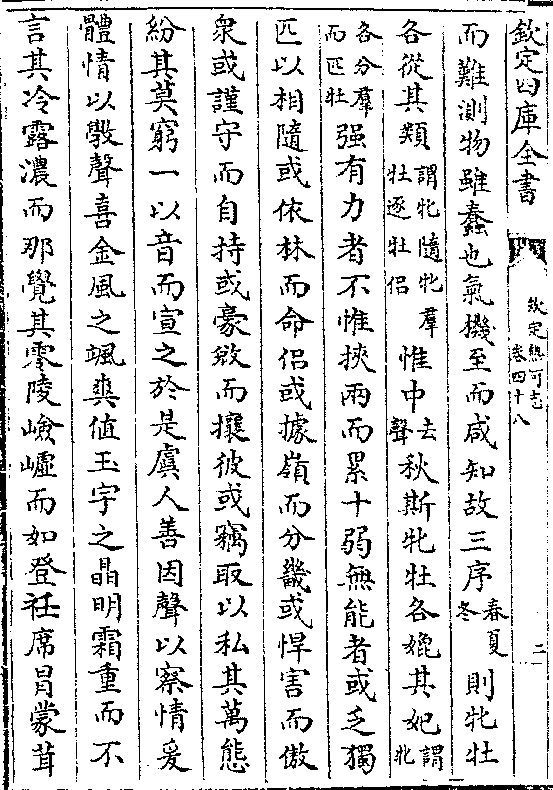 欽定四庫全書
欽定熱河志
卷四十八
二
而難測物雖蠢也氣機至而咸知故三序春夏冬則牝牡
各從其類謂牝隨牝羣牡逐牡侶惟中去聲秋斯牝牡各媲其妃謂牝
各分羣而匹牡强有力者不惟挾兩而累十弱無能者或乏獨
匹以相隨或依林而命侶或據嶺而分畿或悍害而傲
衆或謹守而自持或豪欲而攘彼或竊取以私其萬態
紛其莫窮一以音而宣之於是虞人善因聲以察情爰
體情以斆聲喜金風之颯爽值玉宇之晶明霜重而不
言其冷露濃而那覺其零陵嶮巇而如登衽席冒蒙茸